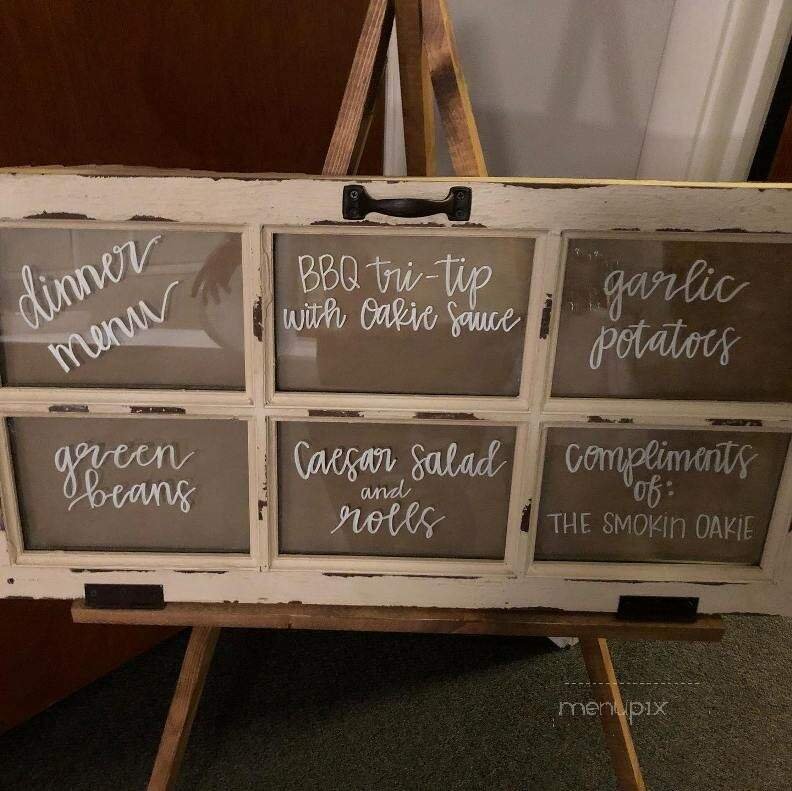 dinner
menu
BBQ tri-tip
with Oakie Sauce
garlic
potatoes
green
beans
Caesar Salad
and
rolls
compliments
of:
THE SMOKIN OAKIE
menupix